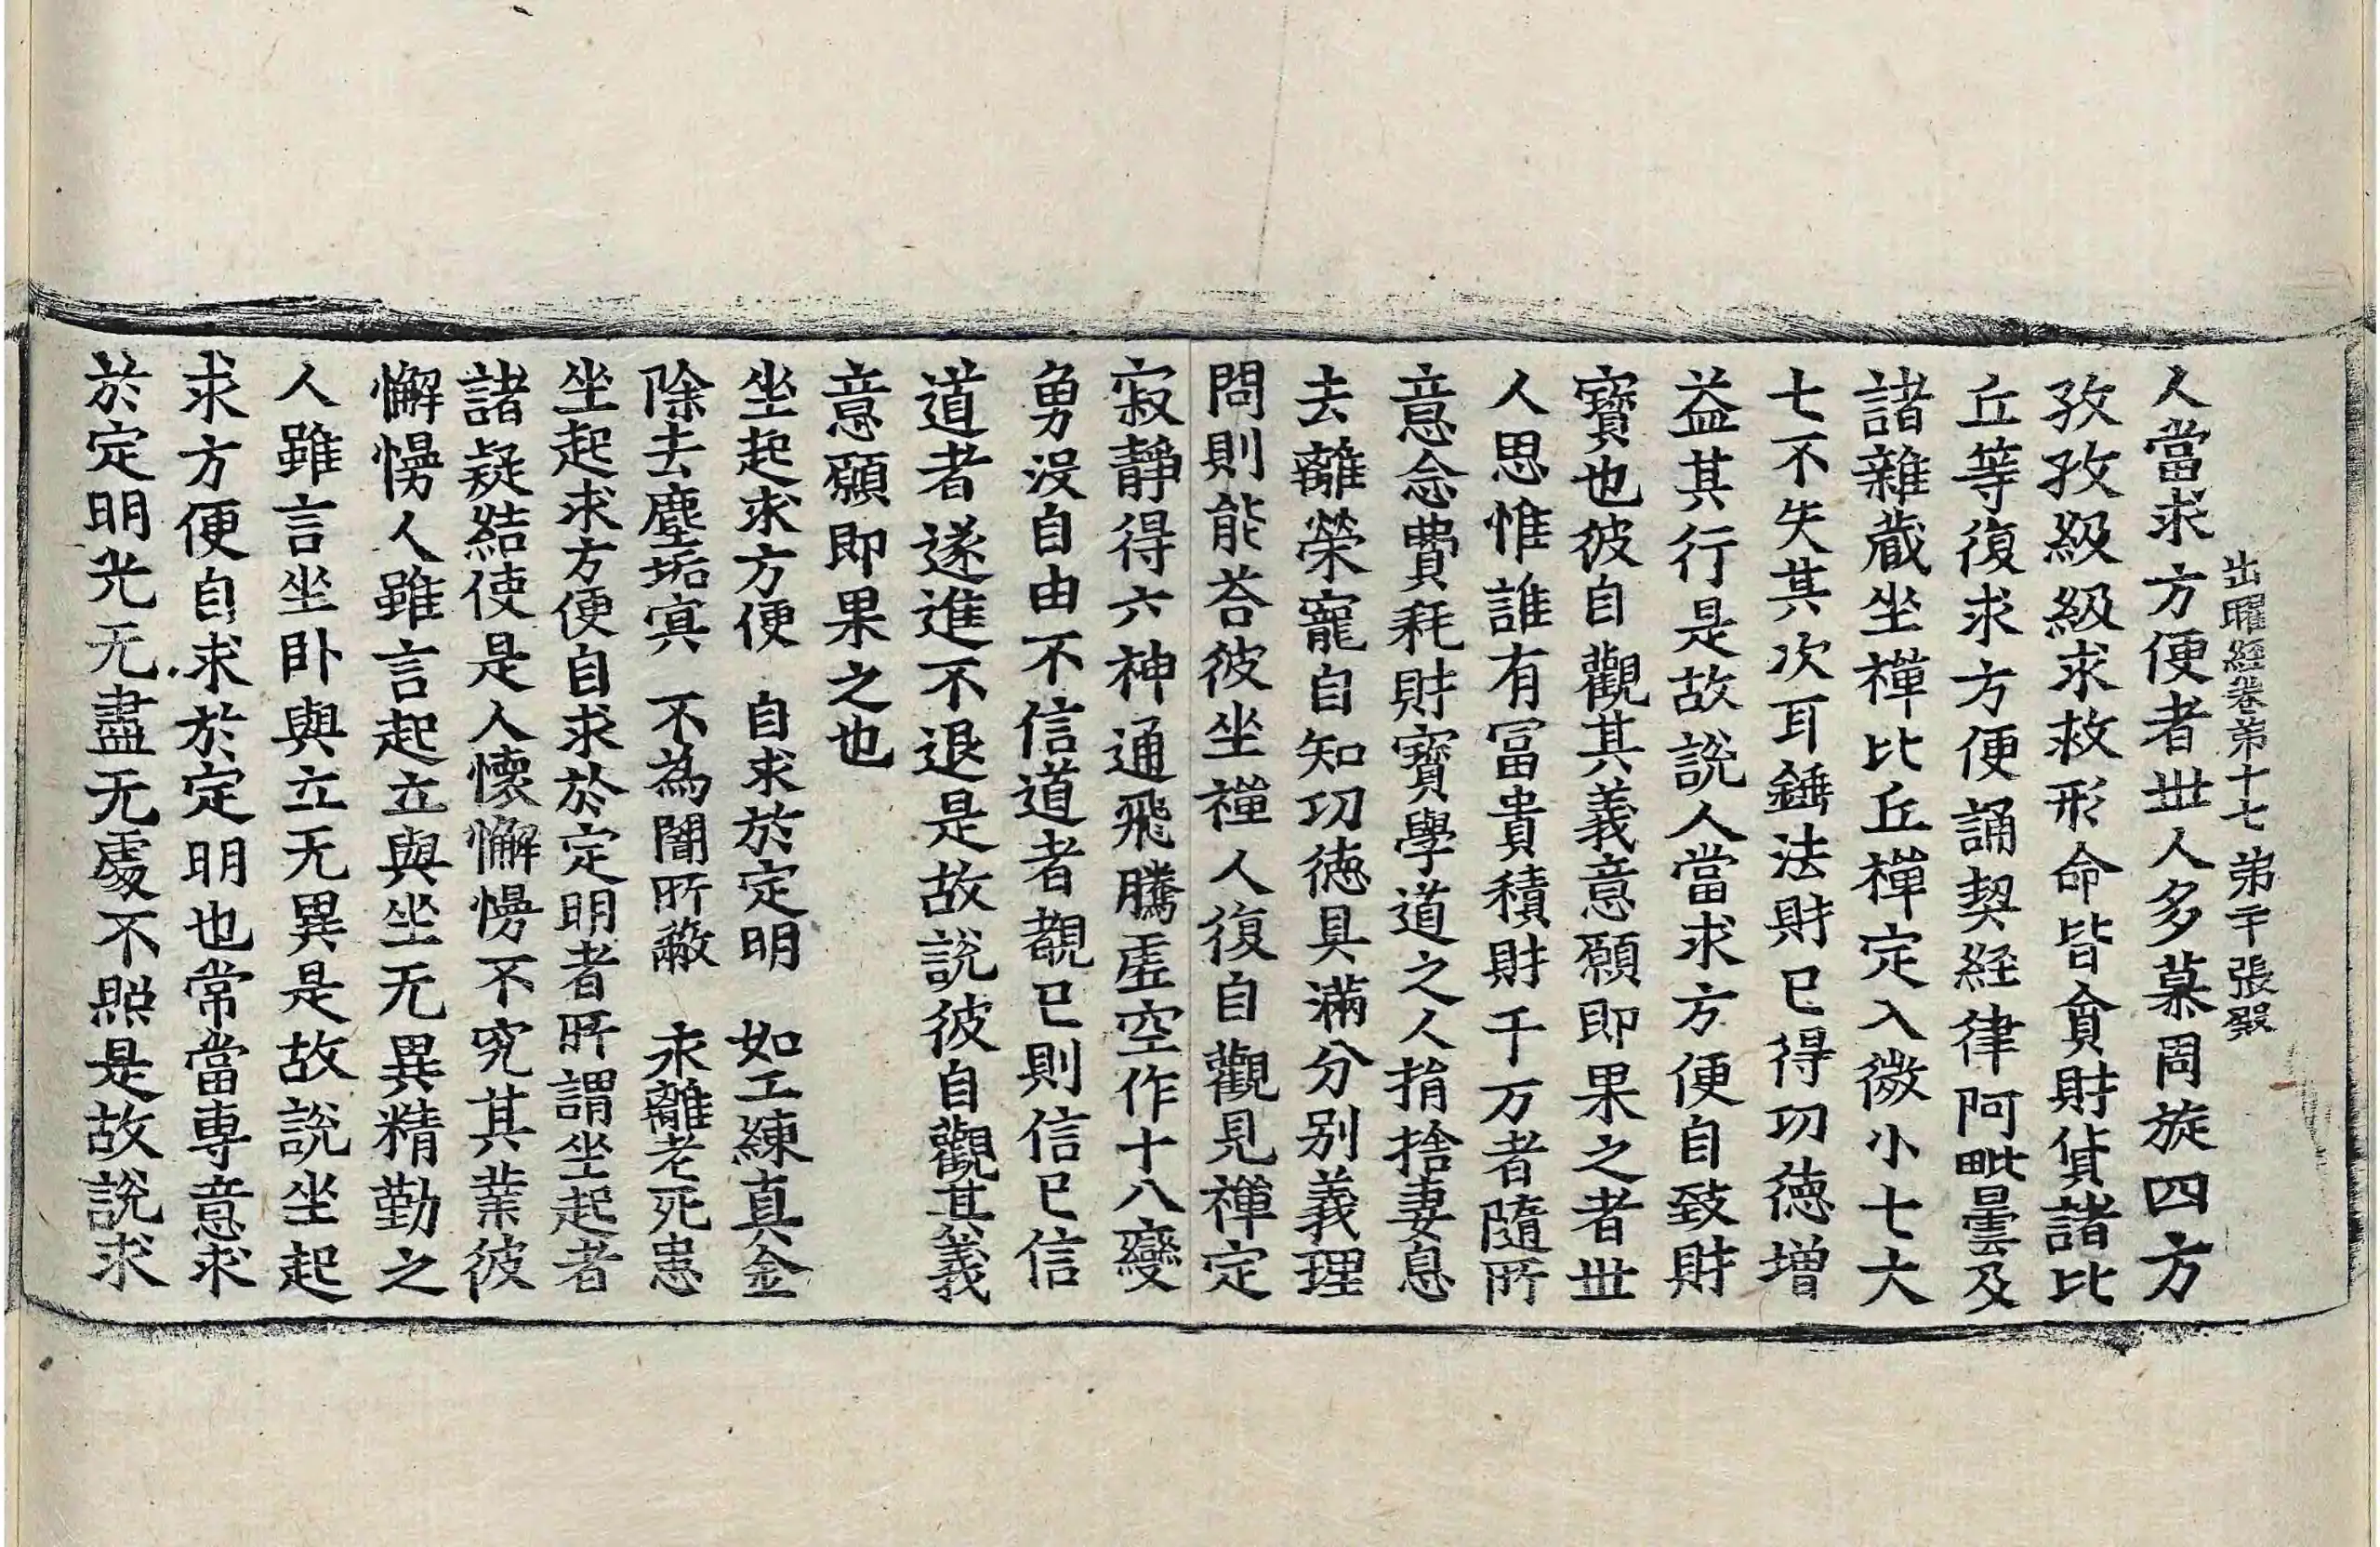 出曜經卷苐十七 苐千張 發
人當求方便者丗人多慕周旋四方
孜孜級級求救形命皆貪財貨諸比
丘等復求方便誦契経律阿毗曇及
諸雜蔵坐禪比丘禪定入微小七大
七不失其次耳錘法財已得功徳増
益其行是故說人當求方便自致財
寶也彼自觀其義意願即果之者丗
人思惟誰有冨貴積財千万者隨所
意念費耗財寶學道之人捐捨妻息
去離榮寵自知功徳具滿分别義理
問則能荅彼坐禪人復自觀見禪定
寂靜得六神通飛騰虛空作十八變
勇没自由不信道者覩已則信已信
道者遂進不退是故說彼自觀其義
意願即果之也
坐起求方便 自求於定明 如工練真金
除去塵垢㝠 不為闇所蔽 永離老死患
坐起求方便自求於定明者所謂坐起者
諸疑結使是人懷懈慢不究其業彼
懈慢人雖言起立與坐无異精勤之
人雖言坐卧與立无異是故說坐起
求方便自求於定明也常當専意求
於定明光无盡无處不照是故說求